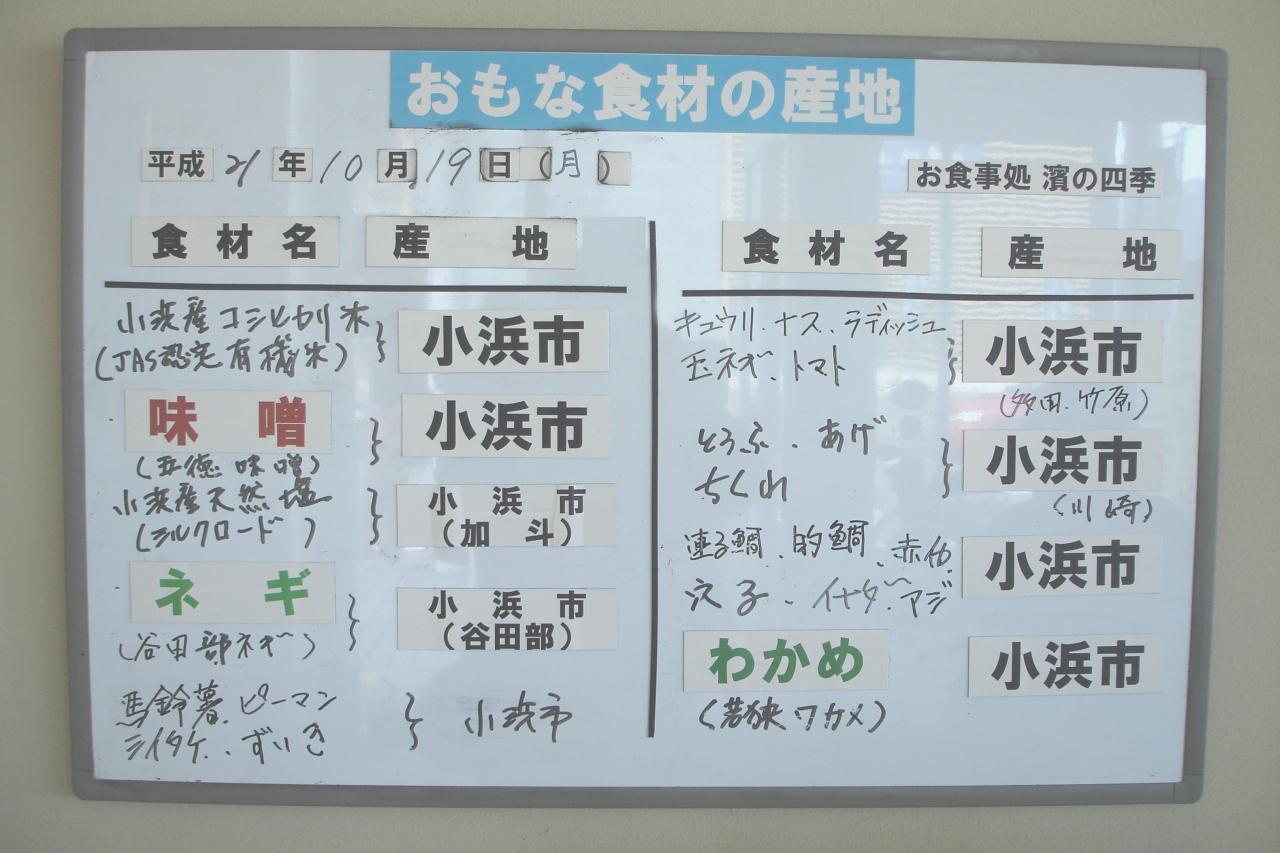 おもな食材の産地
平成 21 年 10 月 19 日 (月)
お食事処 濱の四季
食材名 産地
小浜産コシヒカリ米
(JAS認定有機米)
小浜市
味噌
(五徳味噌)
小浜市
小浜産天然塩
(シルクロード)
小浜市
(加斗)
ネギ
(谷田部ネギ)
小浜市
(谷田部)
馬鈴薯、ピーマン
シイタケ、ずいき
小浜市
食材名 産地
キュウリ、ナス、ラディッシュ
玉ネギ、トマト
小浜市
(多田、竹原)
とうふ、あげ
ちくわ
小浜市
(川崎)
連子鯛、的鯛、赤仏
穴子、イナダ、アジ
小浜市
わかめ
(若狭ワカメ)
小浜市